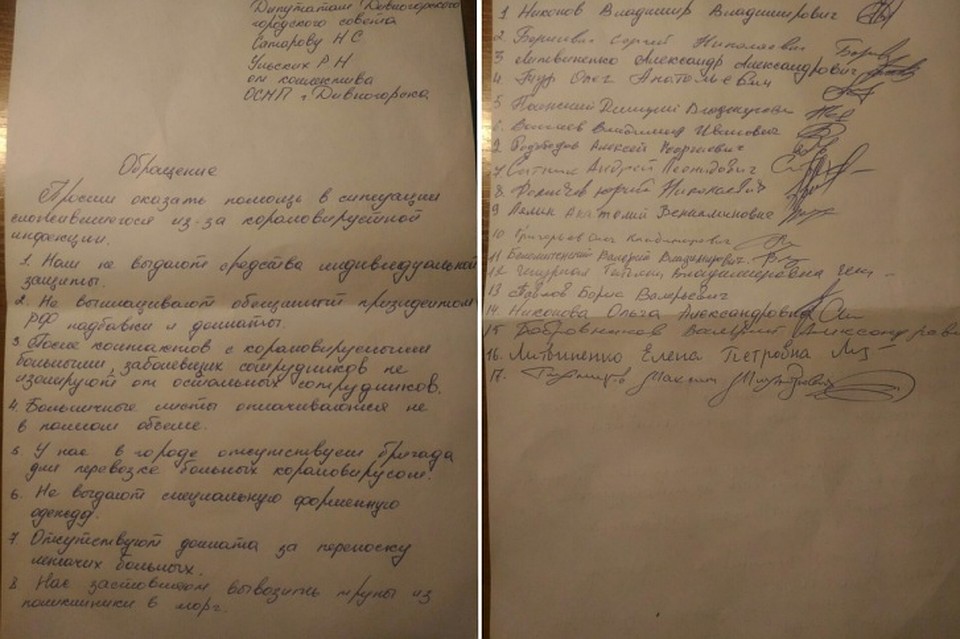 Депутатам Дивногорского
городского совета
Сатарову Н С
Р Н
от коллектива
ОСМП г. Дивногорска
Обращение
Просим оказать помощь в ситуации
сложившегося из-за короновирустной
инфекции.
1. Нам не выдают средства индивидуальной
защиты.
2. Не выплачивают обещанный президентом
РФ надбавки и доплаты.
3 После контактов с короновирусными
больными, заболевших сотрудников не
изолируют от остальных сотрудников.
4. Больничные листы оплачиваются не
в полном объеме.
5. У нас в городе отсутствует бригада
для перевозке больных короновирусом.
6. Не выдают специальную форменную
одежду.
7. Отсутствуют доплата за переноску
лежачих больных.
8 Нас заставляют вывозить трупы из
поликлиники в морг.
1 Никонов Владимир Владимирович
2. Сергей Николаевич
3 Литвиненко Александр Александрович
4 Олег Анатольевич
5 Дмитрий
6. Владимир Иванович
Алексей Георгиевич
7. Сытник Андрей Леонидович
8. Юрий Николаевич
9 Лялин Анатолий Вениаминович
10 Григорьев Олег Владимирович
11 Валерий Владимирович
12 Чепурная Татьяна Владимировна
13 Павлов Борис Валерьевич
14. Никонова Ольга Александровна
15 Бобровников Валерий Александрович
16. Литвиненко Елена Петровна
17. Максим